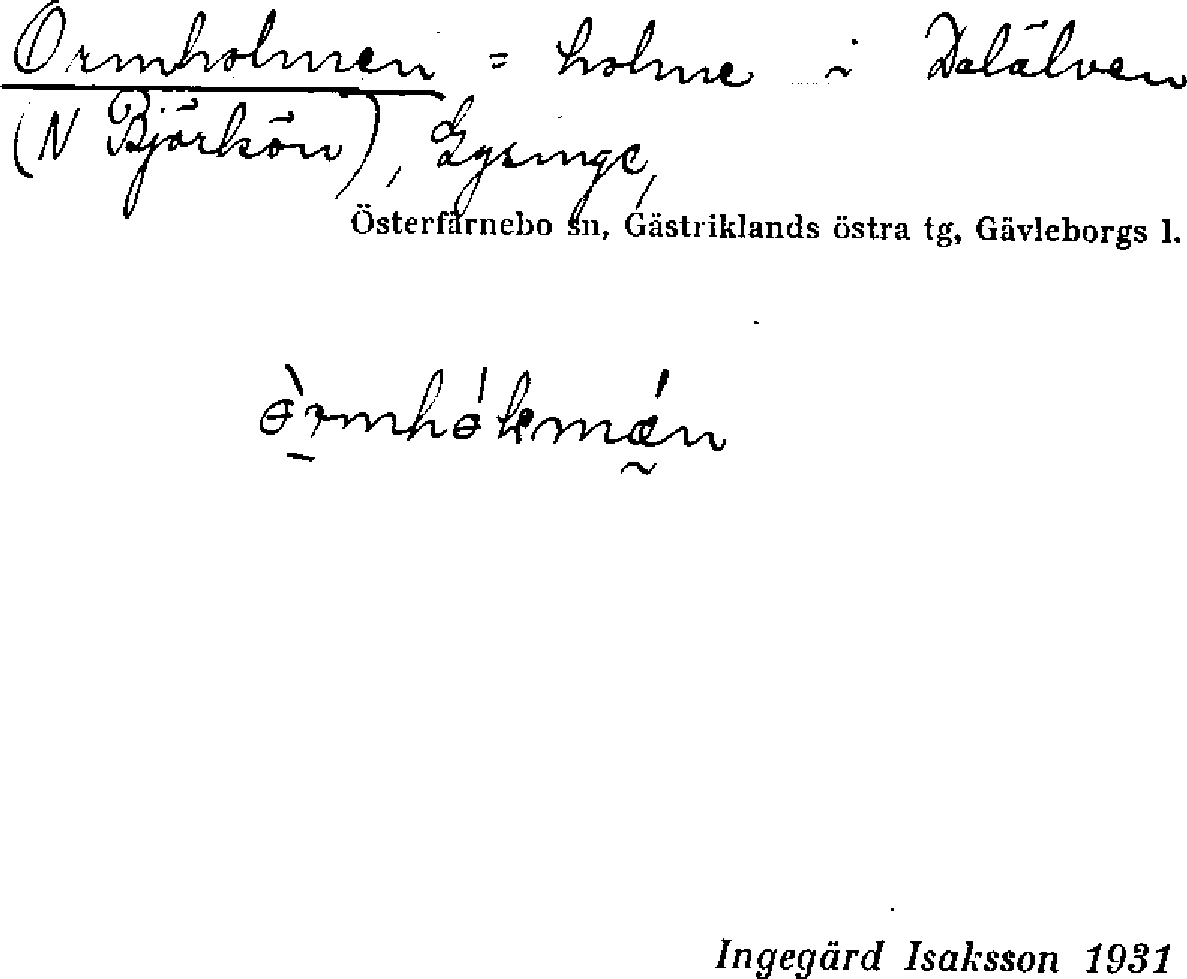 Ormholmen = holme i Dalälven
(N Björkön), Gysinge,
Österfärnebo sn, Gästriklands östra tg, Gävleborgs l.
Ingegärd Isaksson 1931